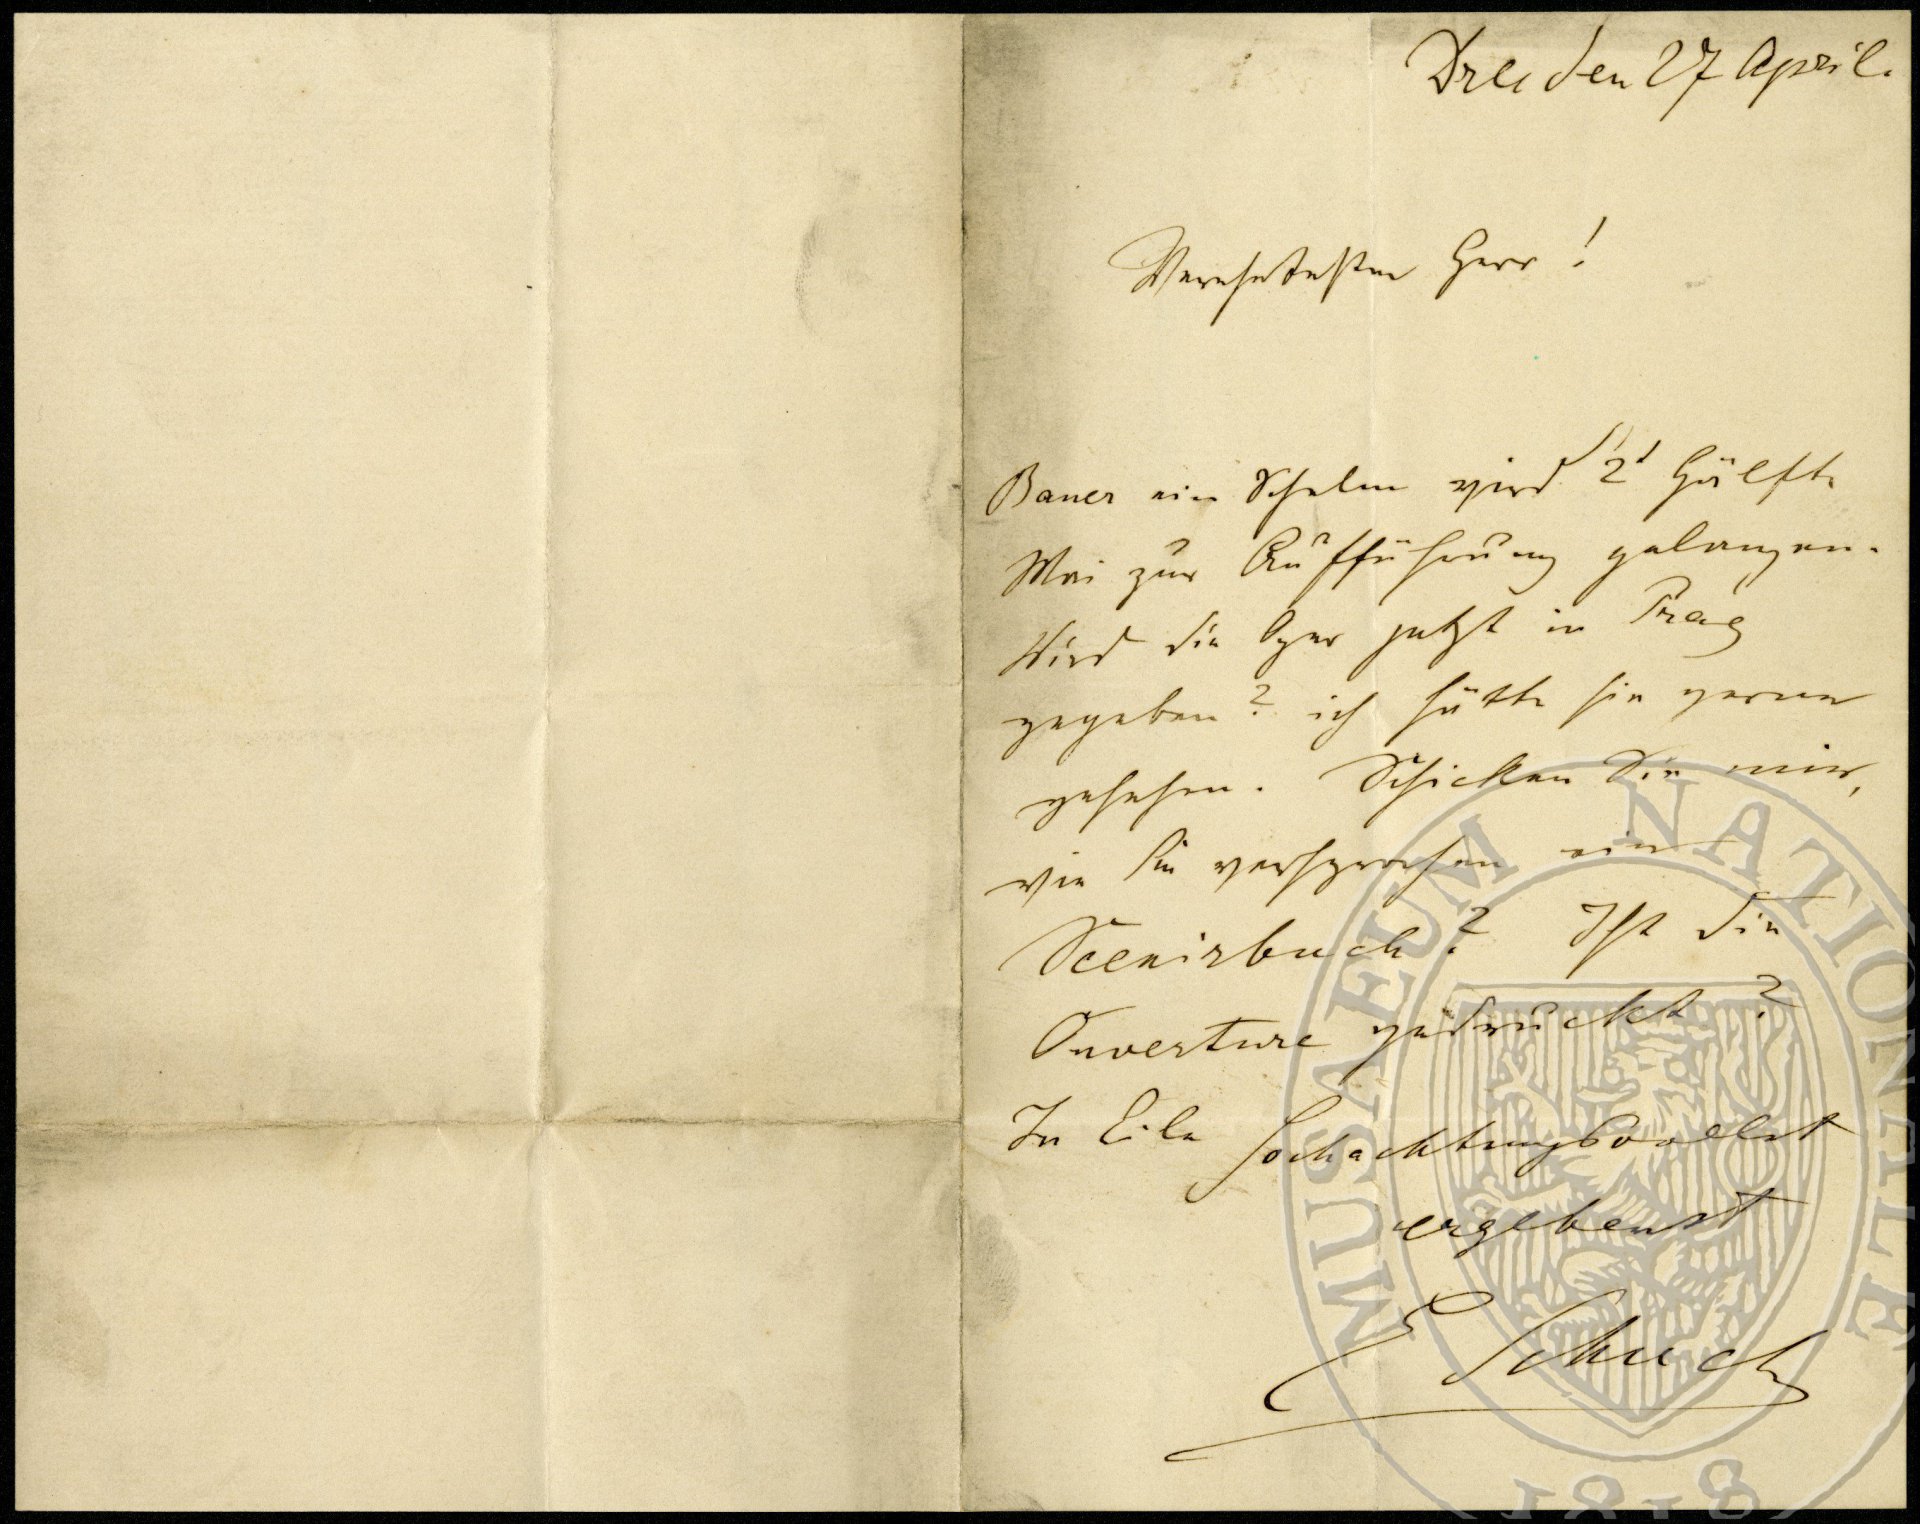 Dresden 27 April.
Verehrtester Herr!
Bauer ein Schelm wird 2t Hälfte
Mai zur Aufführung gelangen.
Wird die Oper jetzt in Prag
gegeben? ich hätte sie gerne
gesehen. Schicken Sie mir,
wie Sie versprochen ein
Scenirbuch? Ist die
Ouverture gedruckt?
In Eile Hochachtungsvollst
ergebenst
E Schuch
MUSAEUM NATIONALE
1818